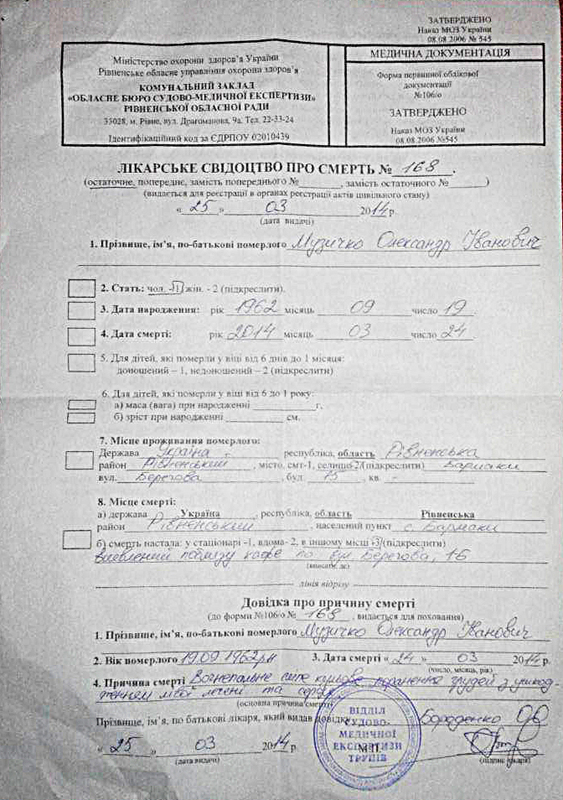 ЗАТВЕРДЖЕНО
Наказ МОЗ України
08.08.2006 № 545
Міністерство охорони здоров'я України
Рівненське обласне управління охорони здоров'я
КОМУНАЛЬНИЙ ЗАКЛАД
«ОБЛАСНЕ БЮРО СУДОВО-МЕДИЧНОЇ ЕКСПЕРТИЗИ»
РІВНЕНСЬКОЇ ОБЛАСНОЇ РАДИ
35028, м. Рівне, вул. Драгоманова, 9а. Тел. 22-33-24
Ідентифікаційний код за ЄДРПОУ 02010439
МЕДИЧНА ДОКУМЕНТАЦІЯ
Форма первинної облікової
документації
№106/о
ЗАТВЕРДЖЕНО
Наказ МОЗ України
08.08.2006 №545
ЛІКАРСЬКЕ СВІДОЦТВО ПРО СМЕРТЬ № 168.
(остаточне, попереднє, замість попереднього № , замість остаточного № )
(видається для реєстрації в органах реєстрації актів цивільного стану)
« 25 » 03 2014 р.
(дата видачі)
1. Прізвище, ім'я, по-батькові померлого Музичко Олександр Іванович
2. Стать: чол. -1, жін. - 2 (підкреслити).
3. Дата народження: рік 1962 місяць 09 число 19.
4. Дата смерті: рік 2014 місяць 03 число 24
5. Для дітей, які померли у віці від 6 днів до 1 місяця:
доношений – 1, недоношений – 2 (підкреслити)
6. Для дітей, які померли у віці від 6 до 1 року:
а) маса (вага) при народженні г.
б) зріст при народженні см.
7. Місце проживання померлого:
Держава Україна республіка, область Рівненська
район Рівненський, місто, смт-1, селище-2 (підкреслити) Бармаки
вул. Берегова, буд. 15, кв. -
8. Місце смерті:
а) держава Україна, республіка, область Рівненська
район Рівненський, населений пункт с. Бармаки
б) смерть настала: у стаціонарі -1, вдома- 2, в іншому місці -3 (підкреслити)
виявлений поблизу кафе по вул. Берегова, 16
(вписати, де)
лінія відрізу
Довідка про причину смерті
(до форми №106/о № 168, видається для поховання)
1. Прізвище, ім'я, по-батькові померлого Музичко Олександр Іванович
2. Вік померлого 19.09.1962рн 3. Дата смерті « 24 » 03 2014 р.
(число, місяць, рік)
4. Причина смерті Вогнепальне сліпе кульове поранення грудей з ушкод-
женням лівої легені та серця
(основна причина смерті)
Прізвище, ім'я, по батькові лікаря, який видав довідку Бороденко
« 25 » 03 2014 р.
(дата видачі)
М.П.
(підпис лікаря)
ВІДДІЛ
СУДОВО-
МЕДИЧНОЇ
ЕКСПЕРТИЗИ
ТРУПІВ